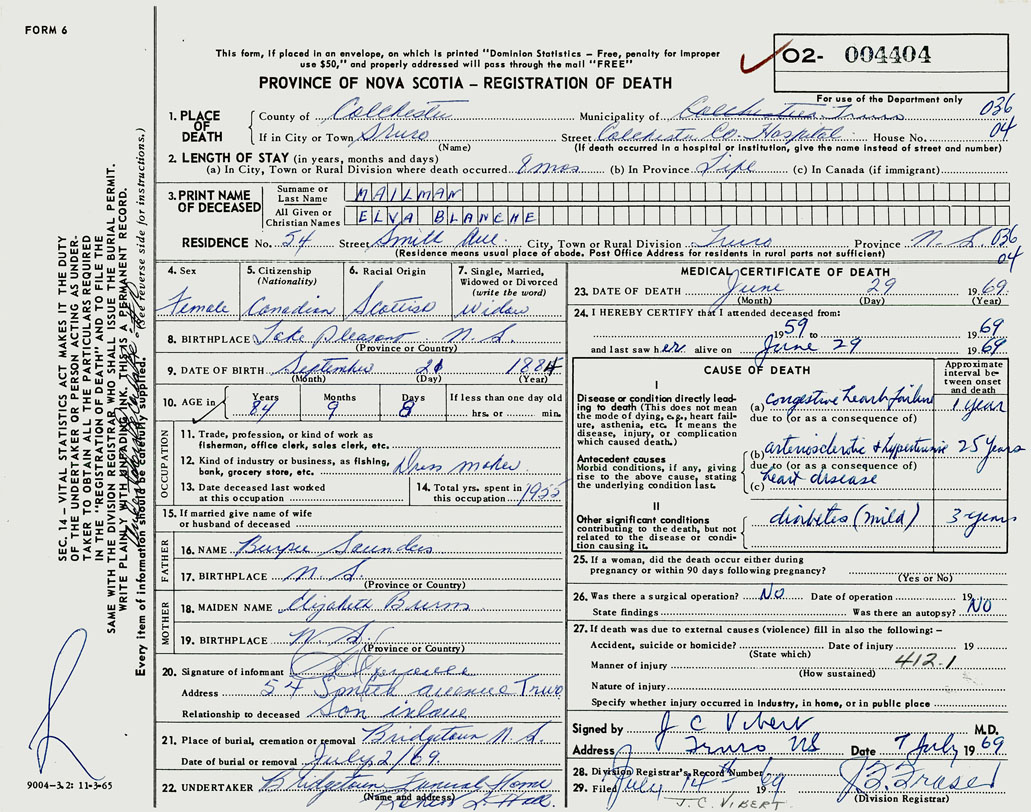 FORM 6
This form, if placed in an envelope, on which is printed "Dominion Statistics – Free, penalty for improper
use $50," and properly addressed will pass through the mail "FREE"
PROVINCE OF NOVA SCOTIA – REGISTRATION OF DEATH
02- 004404
For use of the Department only
036
04
1. PLACE OF DEATH
County of Colchester Municipality of Colchester Truro
If in City or Town Truro Street Colchester Co. Hospital House No.
(Name) (If death occurred in a hospital or institution, give the name instead of street and number)
2. LENGTH OF STAY (in years, months and days)
(a) In City, Town or Rural Division where death occurred 8 mos (b) In Province Life (c) In Canada (if immigrant)
3. PRINT NAME OF DECEASED
Surname or Last Name MAILMAN
All Given or Christian Names ELVA BLANCHE
RESIDENCE No. 54 Street Smith Ave. City, Town or Rural Division Truro Province N.S. 036
04
(Residence means usual place of abode. Post Office Address for residents in rural parts not sufficient)
4. Sex
Female
5. Citizenship
(Nationality)
Canadian
6. Racial Origin
Scottish
7. Single, Married,
Widowed or Divorced
(write the word)
Widow
8. BIRTHPLACE Lake Pleasant N.S.
(Province or Country)
9. DATE OF BIRTH September 21 1884
(Month) (Day) (Year)
10. AGE in
Years Months Days If less than one day old
84 9 8 hrs. or min.
OCCUPATION
11. Trade, profession, or kind of work as
fisherman, office clerk, sales clerk, etc.
12. Kind of industry or business, as fishing,
bank, grocery store, etc. Dress maker
13. Date deceased last worked
at this occupation
14. Total yrs. spent in
this occupation 1955
15. If married give name of wife
or husband of deceased
FATHER
16. NAME Burpee Saunders
17. BIRTHPLACE N.S.
(Province or Country)
MOTHER
18. MAIDEN NAME Elizabeth Burns
19. BIRTHPLACE N.S.
(Province or Country)
20. Signature of informant
Address 54 Smith Avenue Truro
Relationship to deceased Son inlaw
21. Place of burial, cremation or removal Bridgetown N.S.
Date of burial or removal July 2/69
22. UNDERTAKER Bridgetown Funeral Home
(Name and address)
MEDICAL CERTIFICATE OF DEATH
23. DATE OF DEATH June 29 1969
(Month) (Day) (Year)
24. I HEREBY CERTIFY that I attended deceased from:
1959 to 69
and last saw her alive on June 29 1969
CAUSE OF DEATH
Approximate
interval between
onset
and death
I
Disease or condition directly leading
to death (This does not mean
the mode of dying, e.g., heart failure,
asthenia, etc. It means the
disease, injury, or complication
which caused death.)
(a) congestive heart failure 1 year
due to (or as a consequence of)
Antecedent causes
Morbid conditions, if any, giving
rise to the above cause, stating
the underlying condition last.
(b) arteriosclerotic & hypertensive 25 years
due to (or as a consequence of)
(c) heart disease
II
Other significant conditions
contributing to the death, but not
related to the disease or condition
causing it.
diabetes (mild) 3 years
25. If a woman, did the death occur either during
pregnancy or within 90 days following pregnancy?
(Yes or No)
26. Was there a surgical operation? NO Date of operation 19
State findings Was there an autopsy? NO
27. If death was due to external causes (violence) fill in also the following: –
Accident, suicide or homicide? Date of injury 19
(State which)
Manner of injury 412.1
(How sustained)
Nature of injury
Specify whether injury occurred in industry, in home, or in public place
Signed by J C Vibert M.D.
Address Truro NS Date 7 July 1969
28. Division Registrar's Record Number
29. Filed July 14 1969
(Division Registrar)
J.C. VIBERT
SEC. 14 – VITAL STATISTICS ACT MAKES IT THE DUTY
OF THE UNDERTAKER OR PERSON ACTING AS UNDERTAKER
TO OBTAIN ALL THE PARTICULARS REQUIRED
IN THE "REGISTRATION OF DEATH" AND TO FILE THE
SAME WITH THE DIVISION REGISTRAR WHO SHALL ISSUE THE BURIAL PERMIT.
WRITE PLAINLY WITH UNFADING INK. THIS IS A PERMANENT RECORD.
Every item of information should be carefully supplied. (See reverse side for instructions.)
9004-3.2: 11-3-65